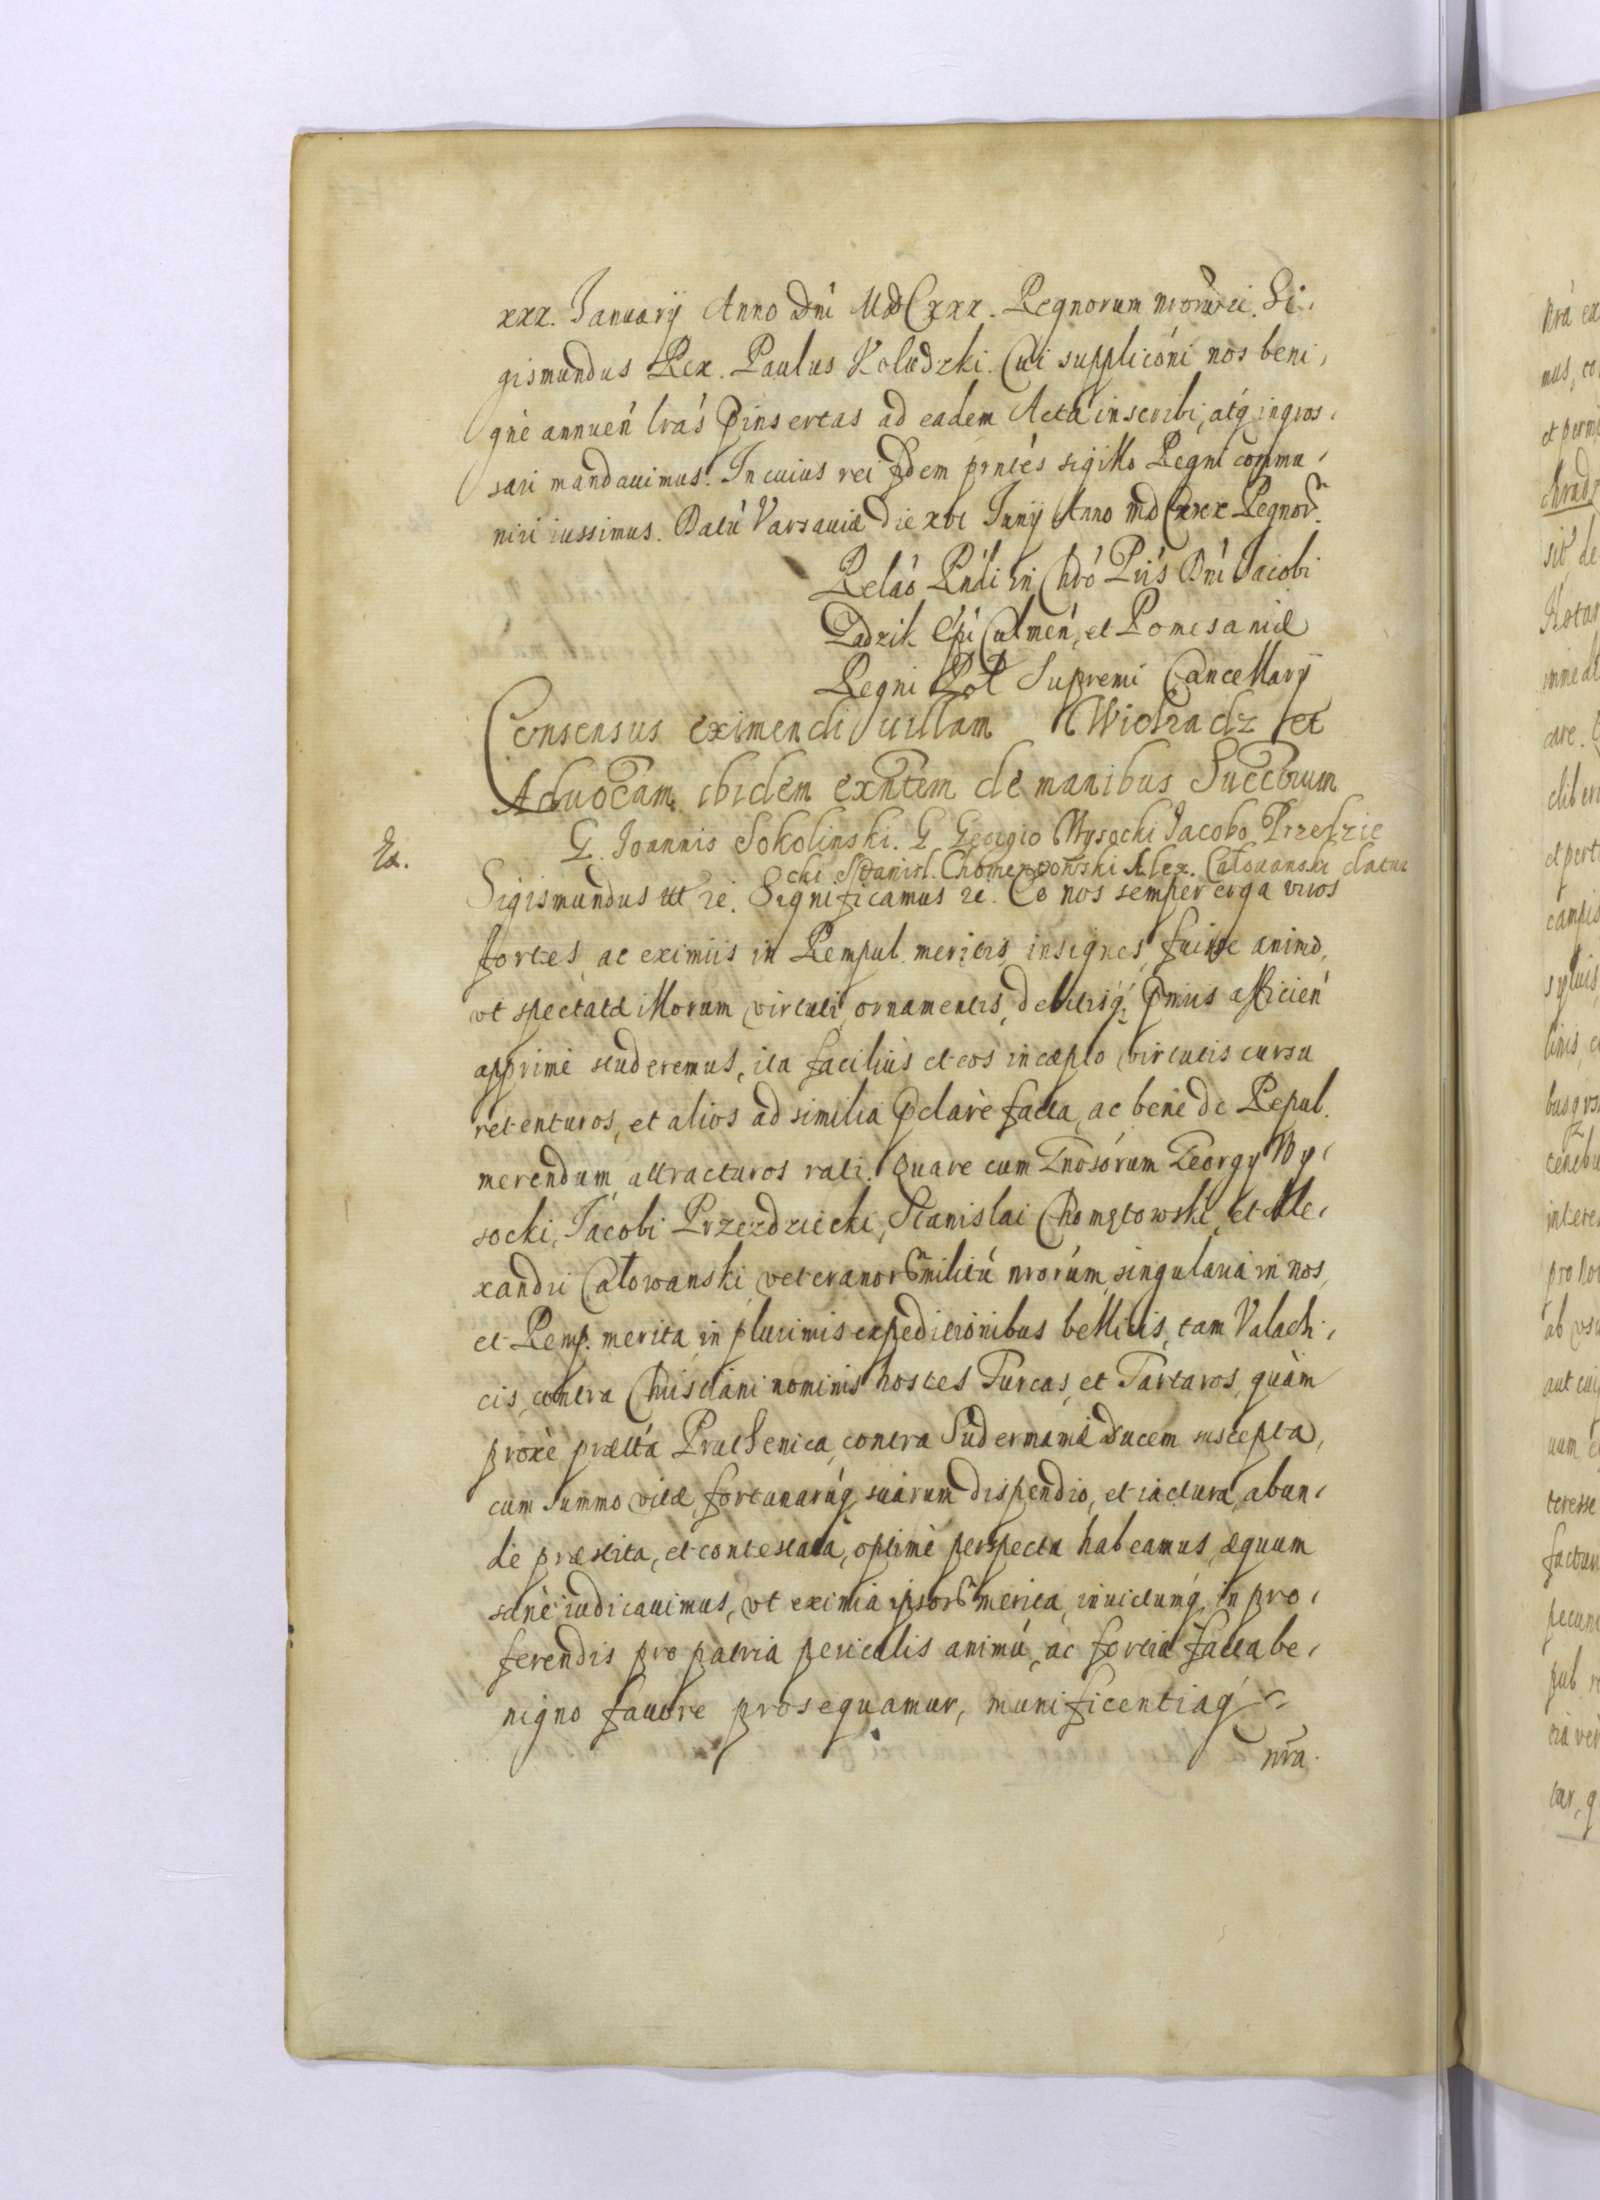 xxx. Januarij Anno Dni MDCxxx. Regnorum nrorum zc. Si,
gismundus Rex. Paulus Koludzki. Cui supplicóni nos beni,
gnè annuen lrás pinsertas ad eadem Acta inscribi, atq ingros,
sari mandauimus. In cuius rei fidem prntés sigillo Regni commu,
niri iussimus. Datú Varsauiæ die xvi Junij Anno MDCxxx Regnor
Relaó Rndi in Chró Pris Dni Jacobi
Zadzik Epi Culmen, et Pomesaniæ
Regni Pol Supremi Cancellarij
Consensus eximendi uillam Wiohradz et
Aduocam ibidem exntem de manibus Succrum
G. Joannis Sokolinski. G Georgio Wysocki Jacobo Przedzie
cki Stanisl. Chomentowski Alex. Calowanski datur
Ex.
Sigismundus III zc. Significamus zc. Eo nos semper erga viros
fortes, ac eximiis in Rempul. meritis insignes, fuisse animo,
vt spectatæ illorum virtuti ornamentis, debitisq pmiis afficien
apprimè studeremus, ita facilius et eos incæpto virtutis cursu
retenturos, et alios ad similia pclarè facta, ac benè de Repul.
merendum attracturos rati. Quare cum Gnosórum Georgij Wy,
socki, Jacobi Przezdziecki, Stanislai Chomętowski, et Ale,
xandri Calowanski veteranor militú nrorúm, singularia in nos,
et Remp. merita, in plurimis expeditionibus bellicis, tam Valachi,
cis, contra Christiani nominis hostes Turcas, et Tartaros, quàm
proxè prælta Pruthenica, contra Sudermaniæ Ducem suscepta,
cum summo vitæ, fortunarúq suarum dispendio, et iactura, abun,
dè præstita, et contestata, optimè perspecta habeamus, æquum
sanè iudicauimus, vt eximia ipsor merita, inuictumq in pro,
ferendis pro patria periculis animú, ac fortia facta be,
nigno fauore prosequamur, munificentiaq
nra